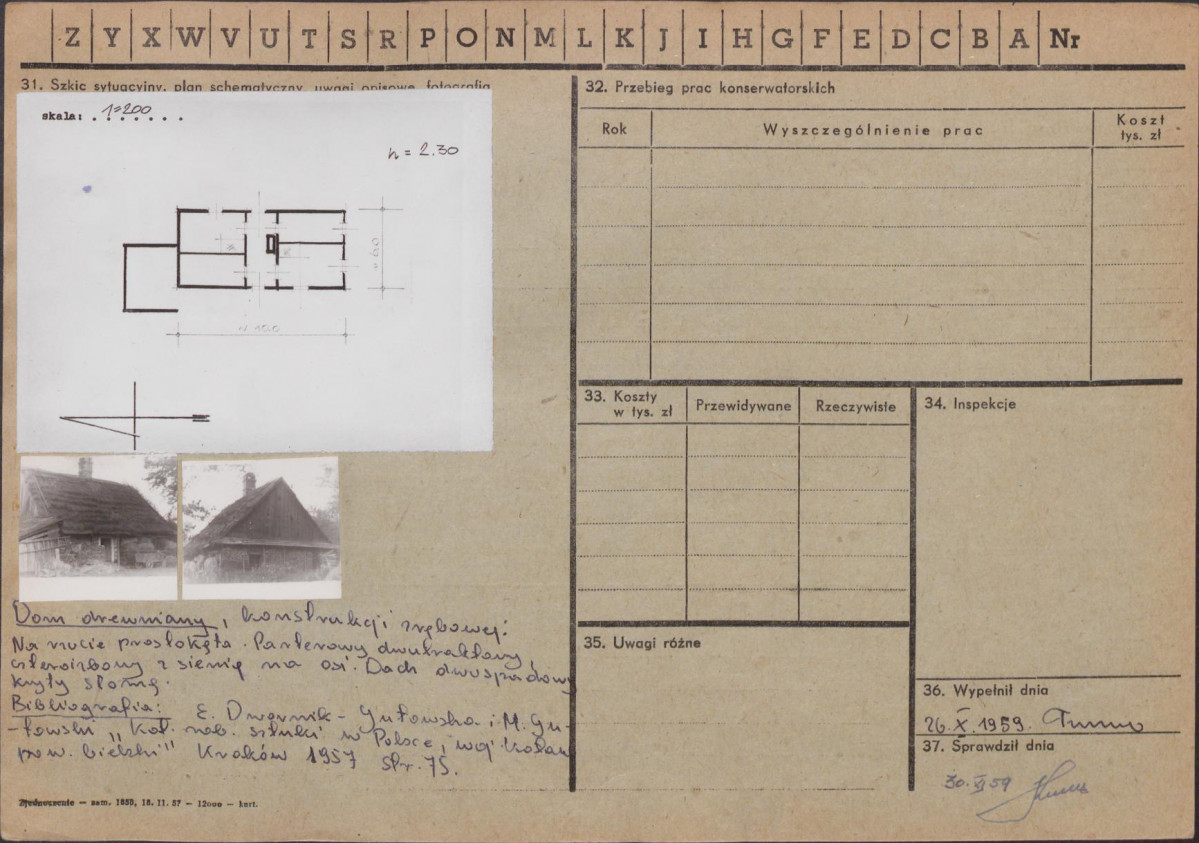 Z Y X W V U T S R P O N M L K J I H G F E D C B A Nr
31. Szkic sytuacyjny, plan schematyczny, uwagi opisowe, fotografia
skala: 1=200
h = 2.30
~ 6.0
~ 10.0
Dom drewniany, konstrukcji zrębowej:
Na rzucie prostokąta. Parterowy dwutraktowy,
czteroizbowy z sienią na osi. Dach dwuspadowy
kryty słomą.
Bibliografia: E. Dwornik-Gutowska i M. Gu-
-towski "Kat. zab. sztuki w Polsce, woj.
pow. bielski" Kraków 1957 str. 75.
Zjednoczenie — zam. 1850, 18. 11. 57 — 12000 — kart.
32. Przebieg prac konserwatorskich
Rok
Wyszczególnienie prac
Koszt
tys. zł
33. Koszty
w tys. zł
Przewidywane
Rzeczywiste
34. Inspekcje
35. Uwagi różne
36. Wypełnił dnia
26. X. 1959.
37. Sprawdził dnia
30. XI 59